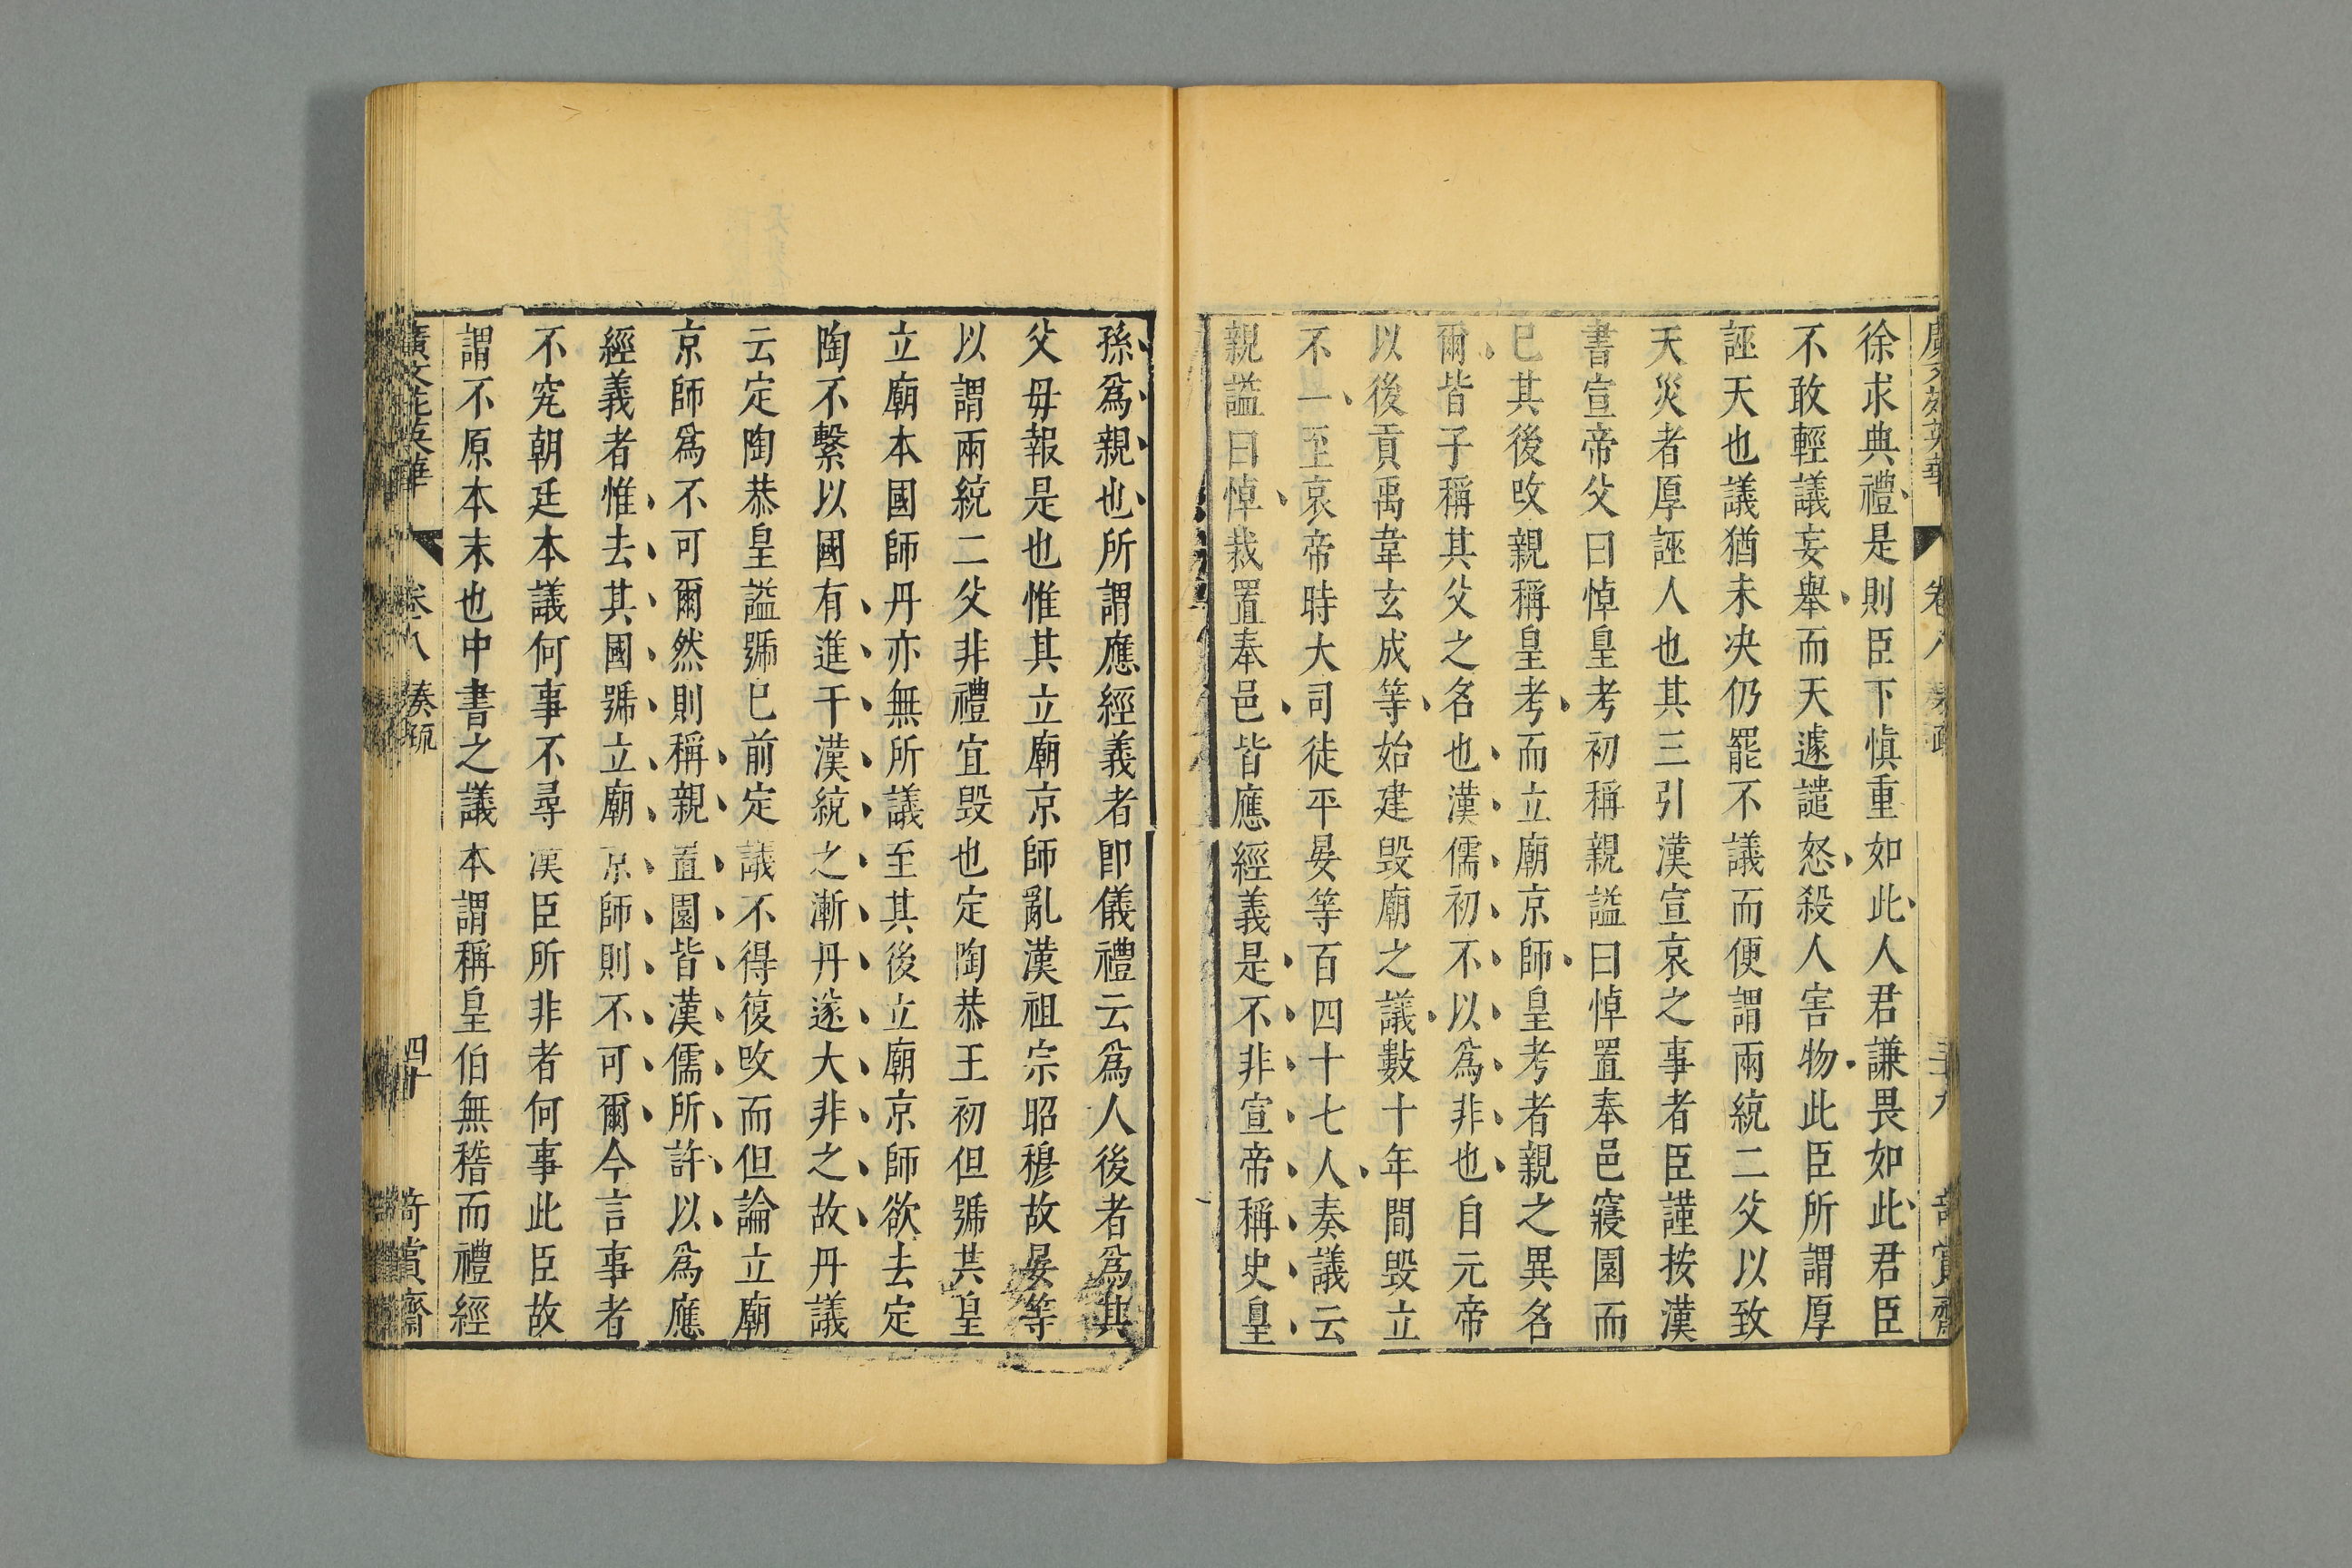 廣文苑英華 卷八 奏疏 三十九 奇賞齋
徐求典禮是則臣下愼重如此人君謙畏如此君臣
不敢輕議妄舉而天遽譴怒殺人害物此臣所謂厚
誣天也議猶未決仍罷不議而便謂兩統二父以致
天災者厚誣人也其三引漢宣哀之事者臣謹按漢
書宣帝父曰悼皇考初稱親謚曰悼置奉邑寢園而
巳其後攺親稱皇考而立廟京師皇考者親之異名
爾皆子稱其父之名也漢儒初不以爲非也自元帝
以後貢禹韋玄成等始建毀廟之議數十年間毀立
不一至哀帝時大司徒平晏等百四十七人奏議云
親謚曰悼裁置奉邑皆應經義是不非宣帝稱史皇
孫爲親也所謂應經義者卽儀禮云爲人後者爲其
父毋報是也惟其立廟京師亂漢祖宗昭穆故晏等
以謂兩統二父非禮宜毀也定陶恭王初但號共皇
立廟本國師丹亦無所議至其後立廟京師欲去定
陶不繫以國有進干漢統之漸丹遂大非之故丹議
云定陶恭皇謚號巳前定議不得復攺而但論立廟
京師爲不可爾然則稱親置園皆漢儒所許以爲應
經義者惟去其國號立廟京師則不可爾今言事者
不究朝廷本議何事不尋漢臣所非者何事此臣故
謂不原本末也中書之議本謂稱皇伯無稽而禮經
廣文苑英華 卷八 奏疏 四十 奇賞齋